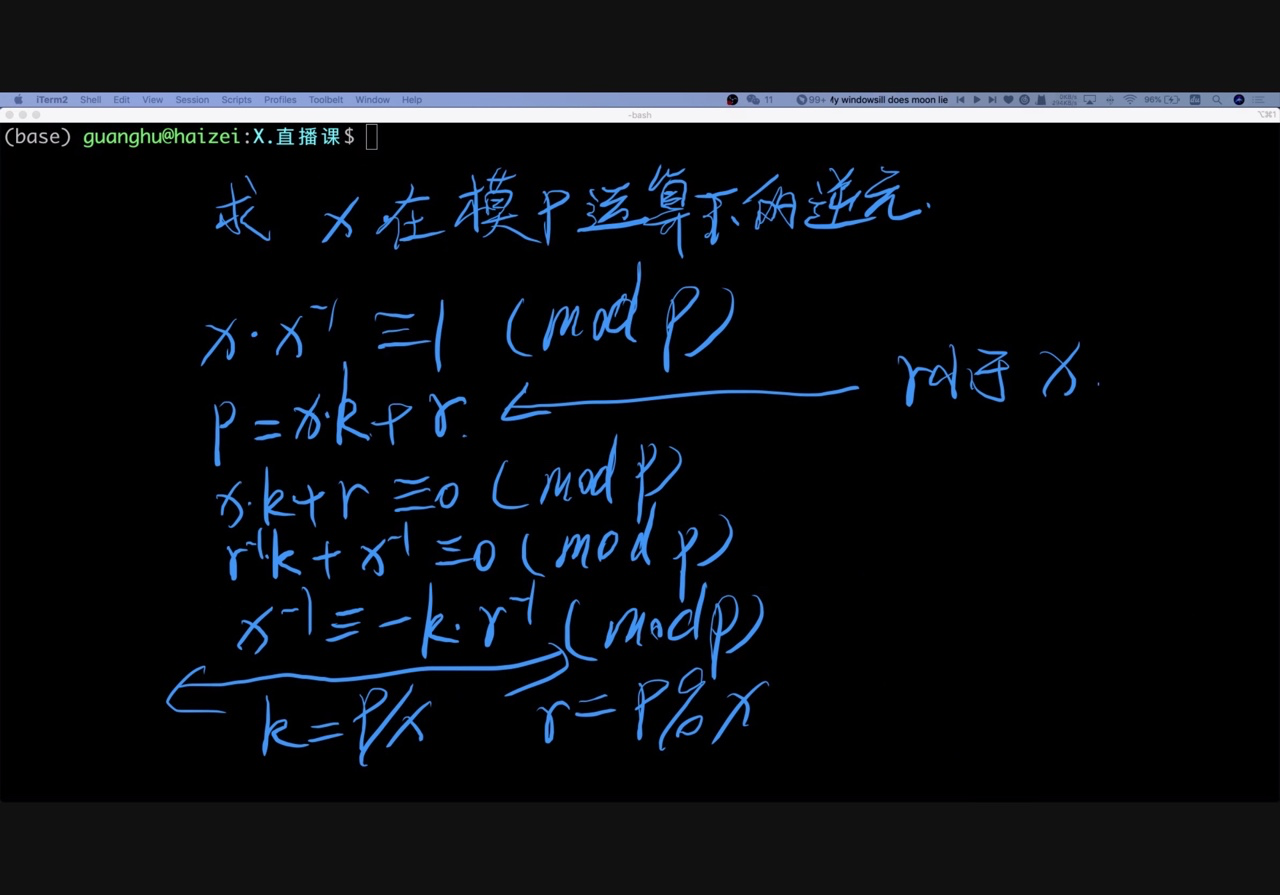 iTerm2 Shell Edit View Session Scripts Profiles Toolbelt Window Help 11 99+ My windowsill does moon lie 96%
-bash
(base) guanghu@haizei:X.直播课$
求 x 在模P运算下的逆元.
x·x⁻¹ ≡1 (mod p)
r小于 x.
p=x·k+r.
x·k+r ≡0 (mod p)
r⁻¹k + x⁻¹ ≡0 (mod p)
x⁻¹ ≡ -k·r⁻¹ (mod p)
k=P/x r=P%x